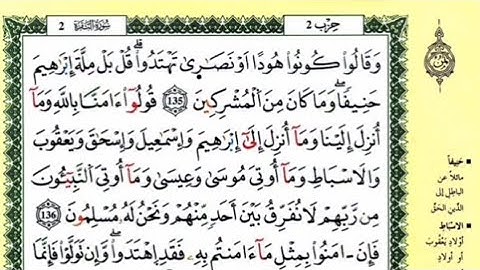 سُورَةُ الْبَقَرَةِ 2
حِزْب 2
وَقَالُواْ كُونُواْ هُودًا اَوْ نَصَٰرَىٰ تَهْتَدُواْ قُلْ بَلْ مِلَّةَ إِبْرَٰهِيمَ
حَنِيفًا وَمَا كَانَ مِنَ الْمُشْرِكِينَ 135 قُولُواْ ءَامَنَّا بِاللَّهِ وَمَآ
أُنزِلَ إِلَيْنَا وَمَآ أُنزِلَ إِلَىٰٓ إِبْرَٰهِيمَ وَإِسْمَٰعِيلَ وَإِسْحَٰقَ وَيَعْقُوبَ
وَالَاسْبَاطِ وَمَآ أُوتِيَ مُوسَىٰ وَعِيسَىٰ وَمَآ أُوتِيَ النَّبِيٓـُٔونَ
مِن رَّبِّهِمْ لَا نُفَرِّقُ بَيْنَ أَحَدٍ مِّنْهُمْ وَنَحْنُ لَهُ مُسْلِمُونَ 136
فَإِنَ -امَنُواْ بِمِثْلِ مَآ ءَامَنتُم بِهِ فَقَدِ اِهْتَدَواْ وَّإِن تَوَلَّوْاْ فَإِنَّمَا
حَنِيفاً
مائلاً عن
الباطِلِ إلى
الدِّينِ الحَقِّ
الاسْبَاطِ
أولادِ يَعْقُوبَ
أو أولادِ